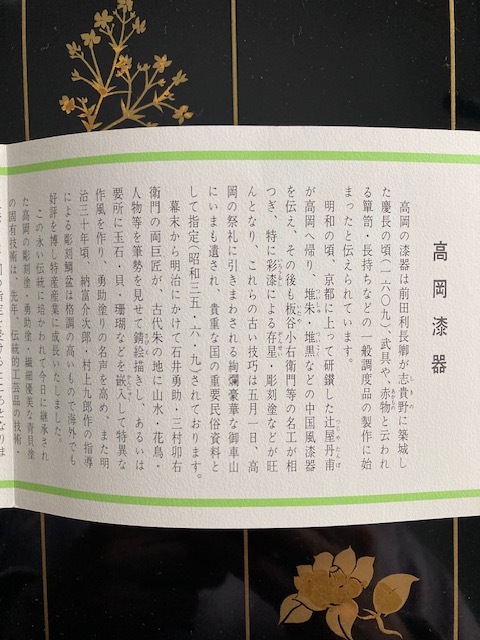 高岡漆器
高岡の漆器は前田利長卿が志貴野に築城し
た慶長の頃(一六〇九)、武具や、赤物と云われ
る簞笥・長持ちなどの一般調度品の製作に始
まったと伝えられています。
明和の頃、京都に上って研鑽した辻屋丹甫
が高岡へ帰り、堆朱・堆黒などの中国風漆器
を伝え、その後も板谷小右衛門等の名工が相
つぎ、特に彩漆による存星・彫刻塗などが旺
んとなり、これらの古い技巧は五月一日、高
岡の祭礼に引きまわされる絢爛豪華な御車山
にいまも遺され、貴重な国の重要民俗資料と
して指定(昭和三五・六・九)されております。
幕末から明治にかけて石井勇助・三村卯右
衛門の両巨匠が、古代朱の地に山水・花鳥・
人物等を筆勢を見せて錆絵描きし、あるいは
要所に玉石・貝・珊瑚などを嵌入して特異な
作風を作り、勇助塗りの名声を高め、また明
治三十年頃、納富介次郎・村上九郎作の指導
による彫刻鯛盆は格調の高いもので海外でも
好評を博し特産産業に成長いたしました。
この永い伝統に培かわれて今日に継承され
た高岡の彫刻塗・勇助塗・繊細優美な青貝塗
の固有技術は、先年、伝統的工芸品の技術・